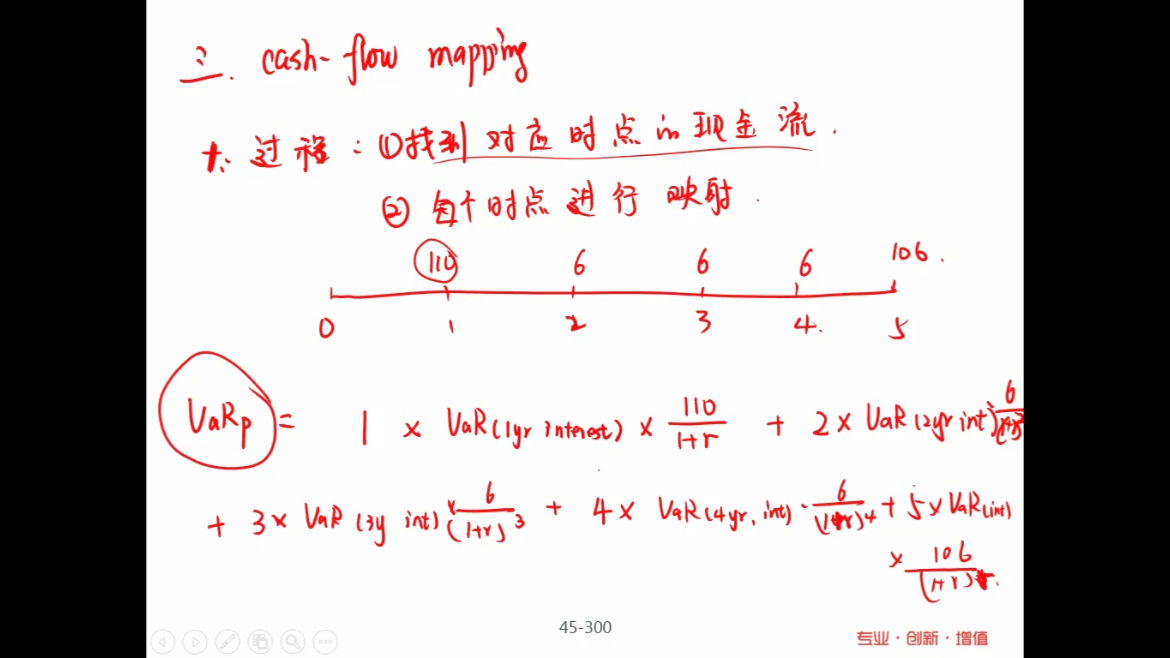 三. cash-flow mapping
1. 过程: ①找到对应时点的现金流.
② 每个时点进行映射.
110 6 6 6 106.
0 1 2 3 4. 5
VaRp = 1 × VaR(1yr interest) × 110/1+r + 2 × VaR(2yr int) 6/(1+r)²
+ 3 × VaR(3y int) × 6/(1+r)³ + 4 × VaR(4yr, int) · 6/(1+r)⁴ + 5 × VaR(int)
× 106/(1+r)
45-300
专业·创新·增值